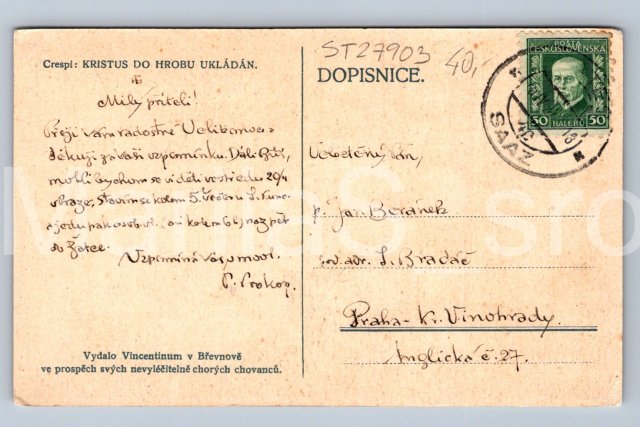 Crespi: KRISTUS DO HROBU UKLÁDÁN.
Milý příteli!
Přeji Vám radostné Velikonoce
děkuji za vaši vzpomínku. Dá-li Bůh,
mohli bychom se viděti ve středu 20/4
v Praze, stavím se kolem 5. večer u
a jedu pak osob. vl. (ani kolem 6h) naz pět
do Žatce.
Vzpomíná Vás v modl.
P. Prokop.
Vydalo Vincentinum v Břevnově
ve prospěch svých nevyléčitelně chorých chovanců.
ST27903
40,-
DOPISNICE.
POŠTA
ČESKOSLOVENSKÁ
50 HALÉŘŮ 50
SAAZ
Veledctěný Pán,
p. Jan Beránek
na adr. J. Bradáč
Praha - Kr. Vinohrady.
Anglická č. 27.